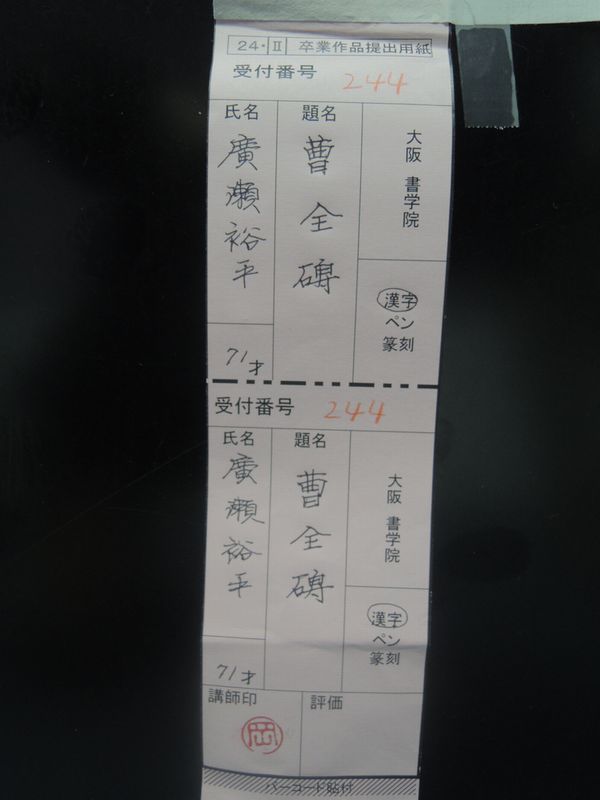 24・Ⅱ 卒業作品提出用紙
受付番号 244
大阪 書学院
漢字
ペン
篆刻
題名
曹全碑
氏名
廣瀬裕平
71才
受付番号 244
大阪 書学院
漢字
ペン
篆刻
題名
曹全碑
氏名
廣瀬裕平
71才
講師印
岡
評価
バーコード貼付